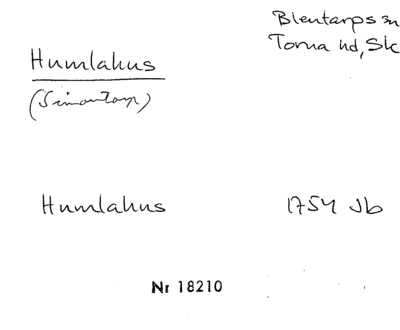 Blentarps sn
Torna hd, Sk
Humlahus
(Simontorp)
Humlahus 1754 Jb
Nr 18210